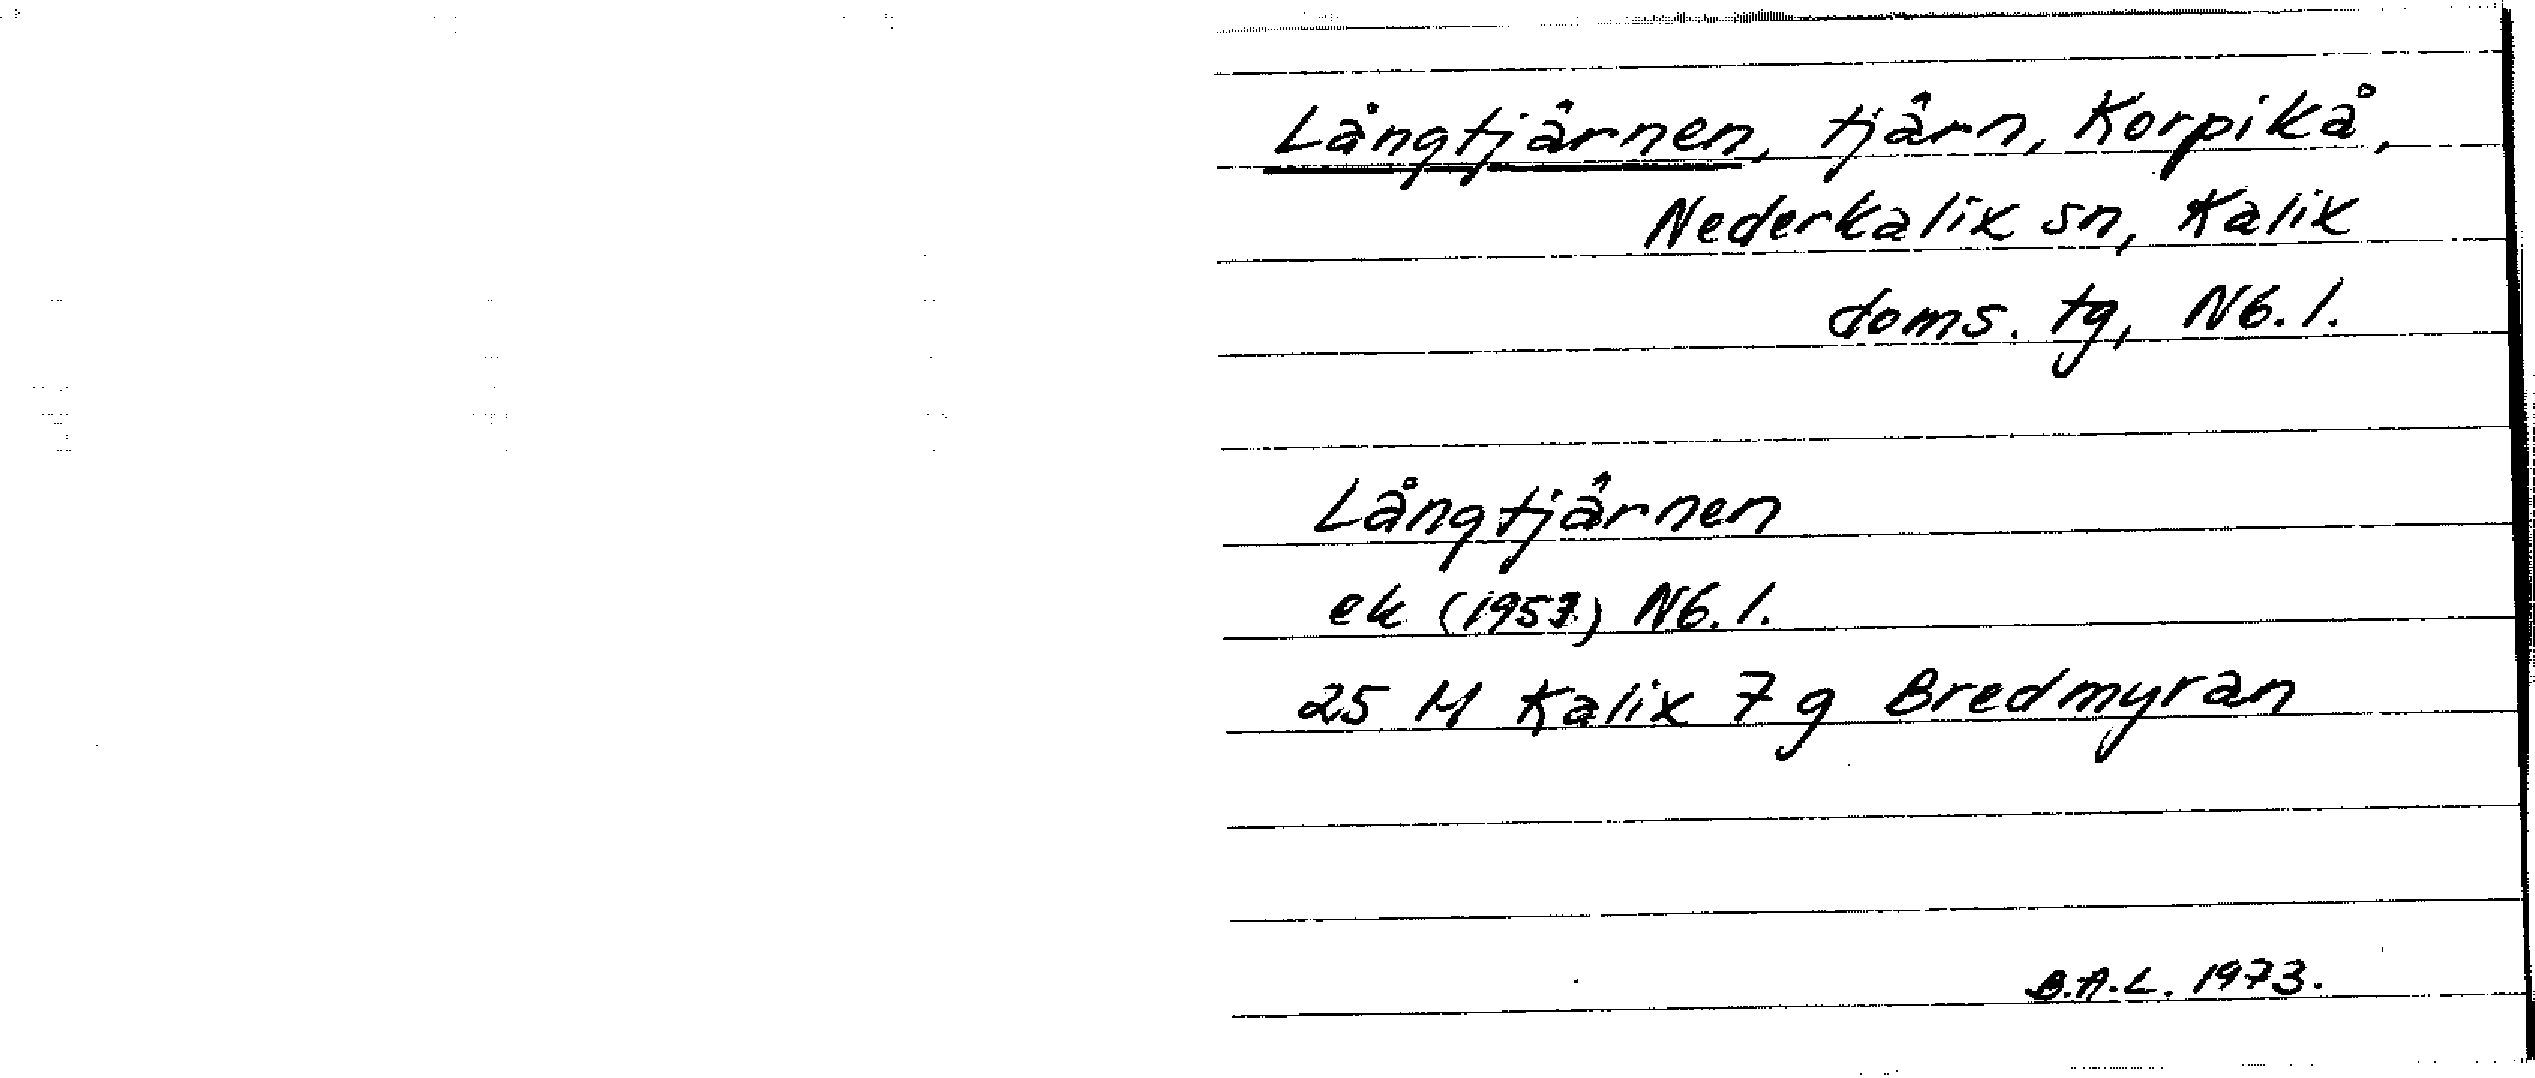 Långtjärnen, tjärn, Korpikå,
Nederkalix sn, Kalix
doms. tg, Nb. l.
Långtjärnen
ek (1957) Nb. l.
25 M Kalix 7 g Bredmyran
B.A.L. 1973.